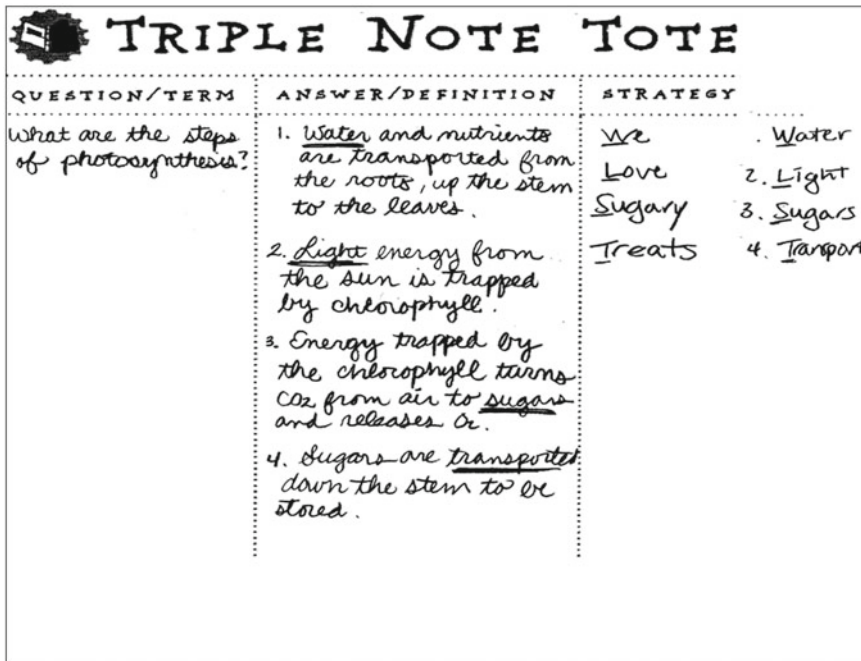 TRIPLE NOTE TOTE
QUESTION/TERM
ANSWER/DEFINITION
STRATEGY
What are the steps
of photosynthesis?
1. Water and nutrients
are transported from
the roots, up the stem
to the leaves.
2. Light energy from
the sun is trapped
by chlorophyll.
3. Energy trapped by
the chlorophyll turns
CO2 from air to sugars
and releases O2.
4. Sugars are transported
down the stem to be
stored.
We
Love
Sugary
Treats
. Water
2. Light
3. Sugars
4. Transport